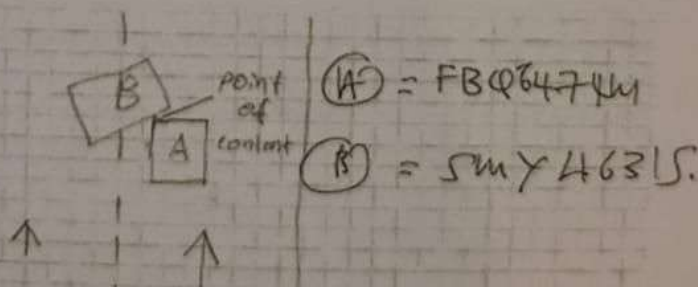 B
point
of
contact
A
(A) = FBQ6474M
(B) = SMY4631S.